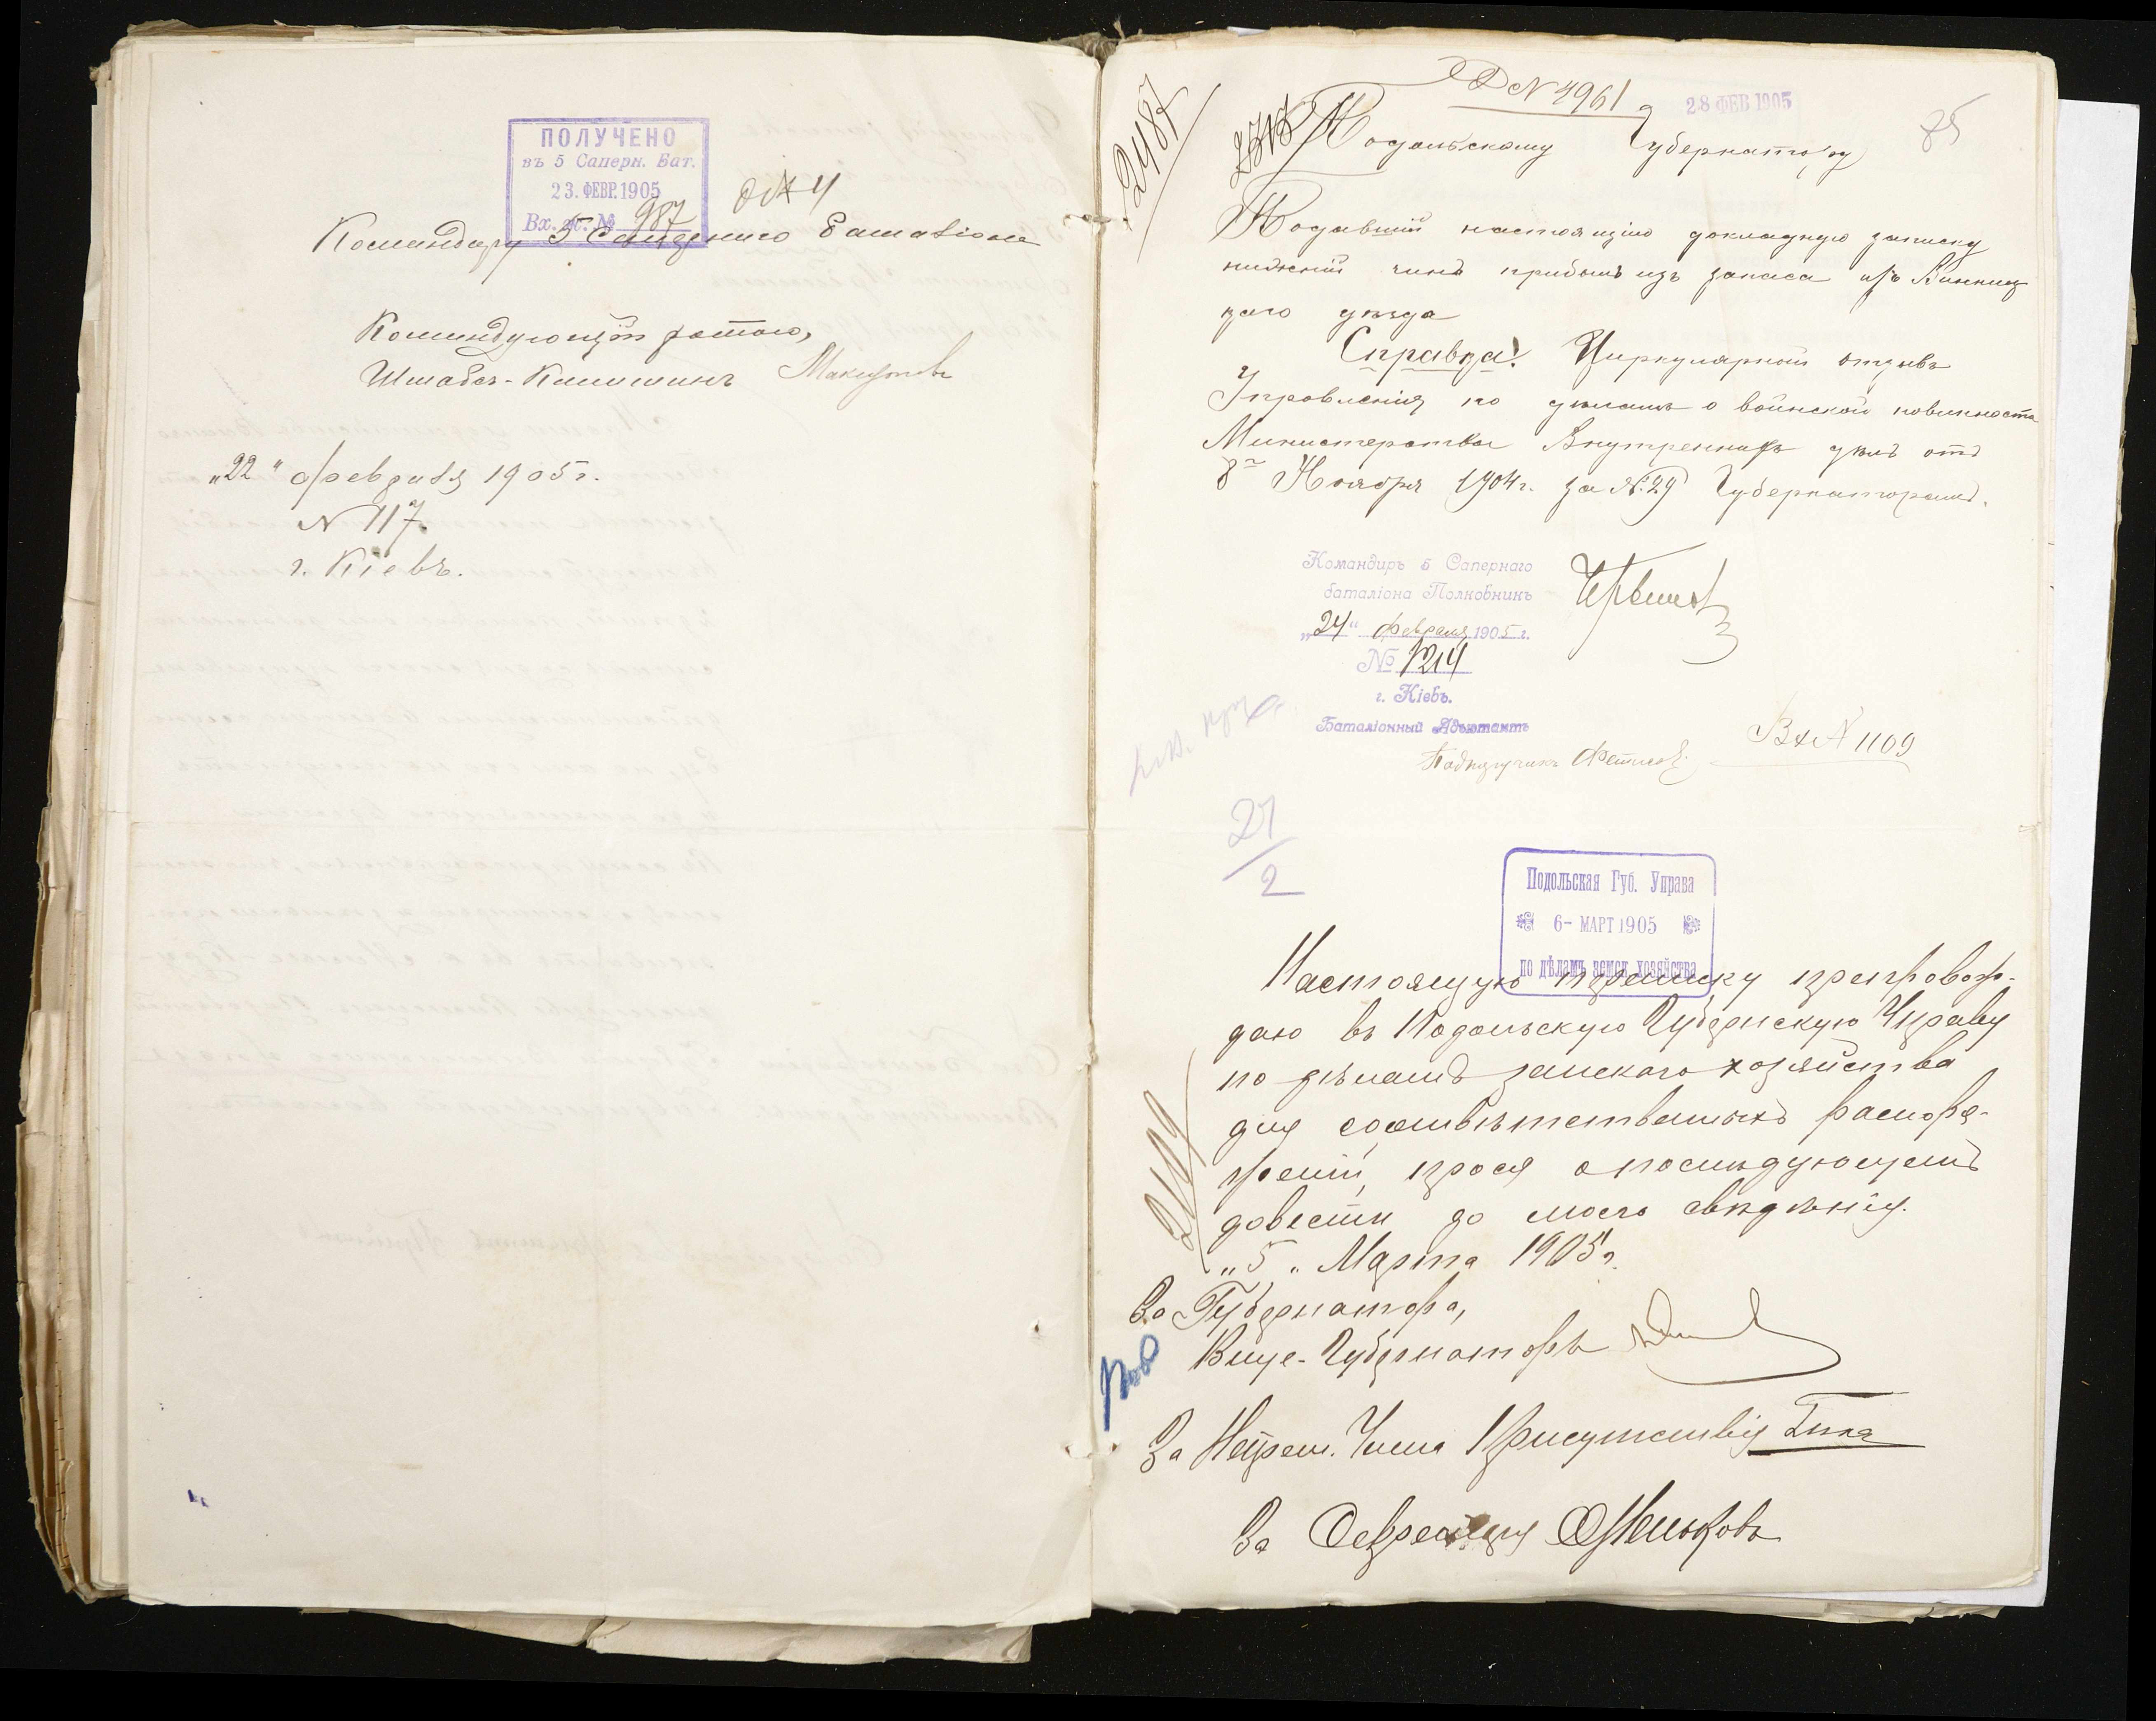 ПОЛУЧЕНО
въ 5 Саперн. Бат.
23. ФЕВР. 1905
Вх. № 987
Командиру 5 Сапернаго баталіона
Командующій ротою,
Штабсъ-Капитанъ
„22" февраля 1905 г.
№ 117.
г. Кіевъ.
2487
№ 4961
28 ФЕВ 1905
Подольскому Губернатору
Подавшій настоящую докладную записку
нижній чинъ прибылъ изъ запаса изъ Винниц
каго уѣзда
Справка: Циркулярный отзывъ
Управленія по дѣламъ о воинской повинности
Министерства Внутреннихъ дѣлъ отъ
8го Ноября 1904 г. за № 29 Губернаторамъ.
Командиръ 5 Сапернаго
баталіона Полковникъ
„24" Февраля 1905 г.
№ 1214
г. Кіевъ.
Баталіонный Адъютантъ
Подпоручикъ
Вх № 1109
27/2
Подольская Губ. Управа
6- МАРТ 1905
по дѣламъ земск. хозяйства
Настоящую переписку препровож-
даю въ Подольскую Губернскую Управу
по дѣламъ земскаго хозяйства
для соотвѣтственныхъ распоря-
женій, прося о послѣдующемъ
довести до моего свѣдѣнія.
„5„ Марта 1905 г.
За Губернатора,
Вице-Губернаторъ
За Непрем. Члена Присутствія
За Секретаря